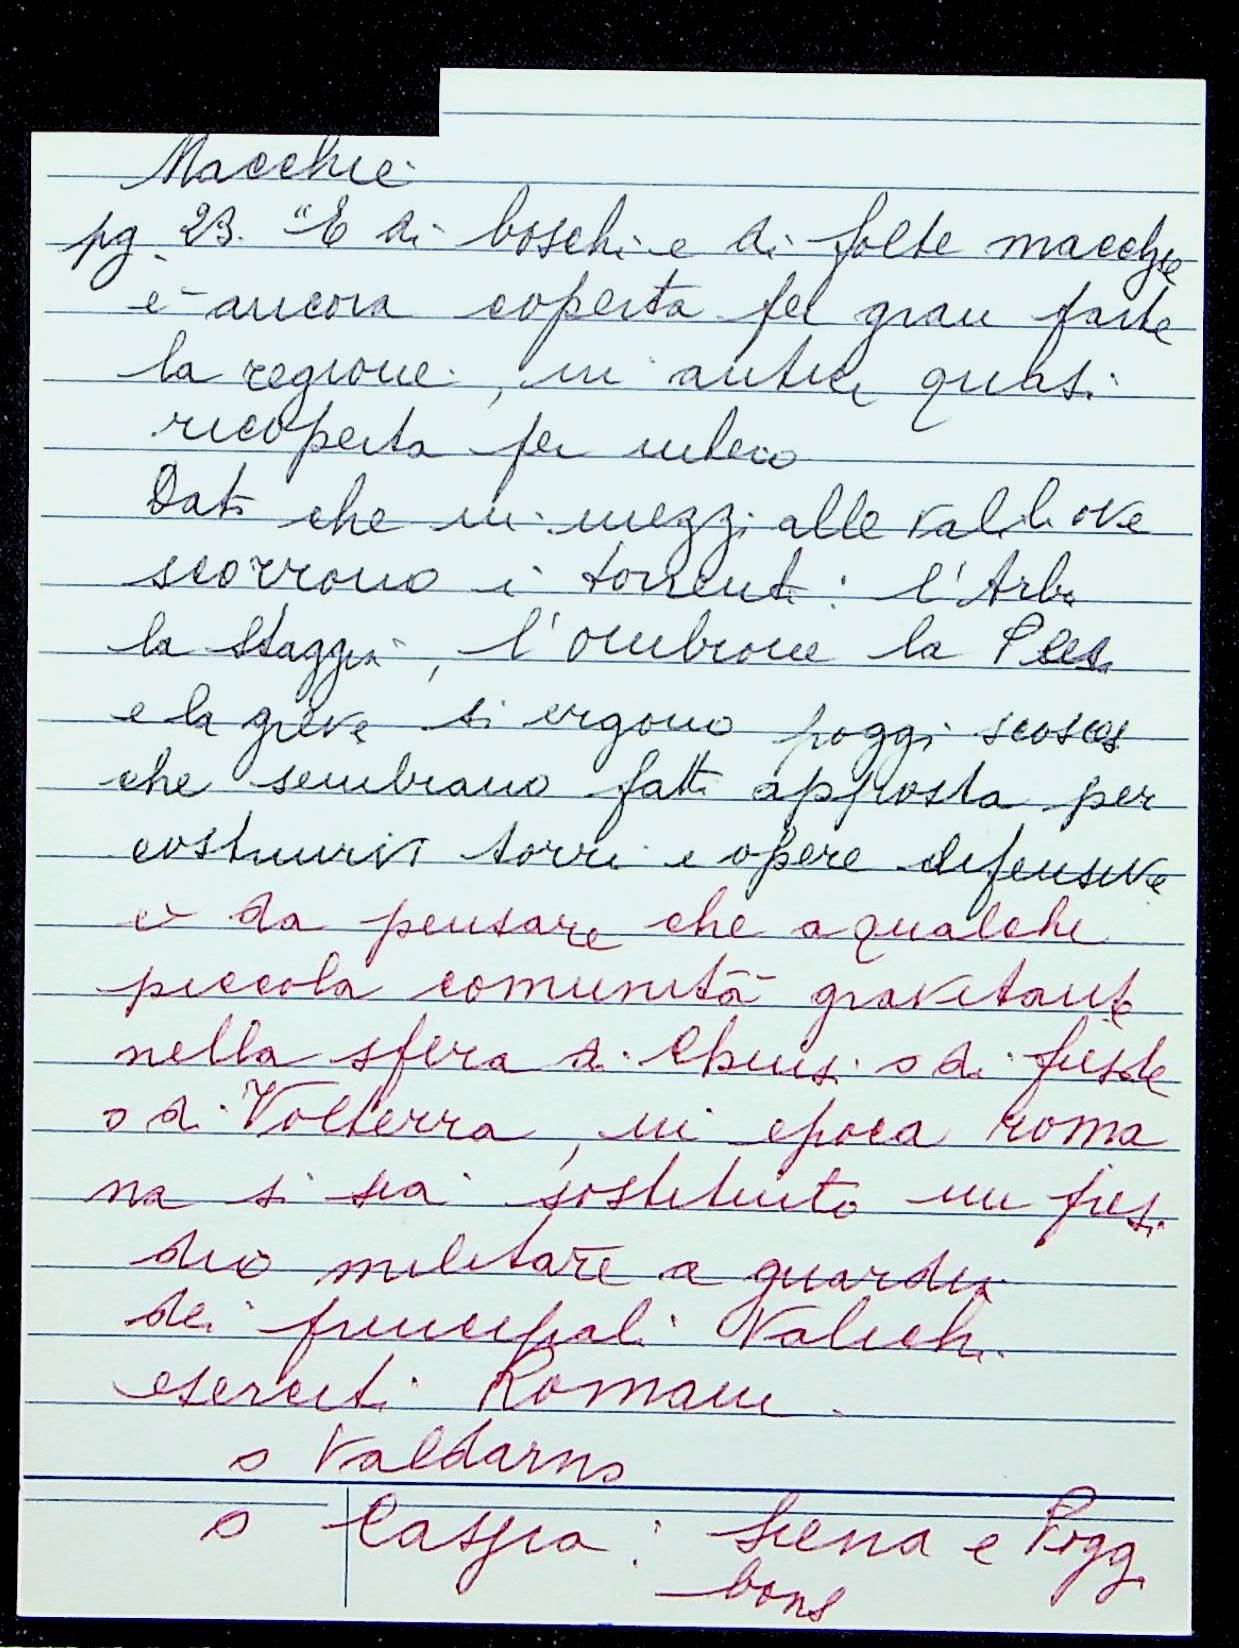 Macchie
pg. 23. "E di boschi e di folte macchie
è ancora coperta per gran parte
la regione, in antico quasi
ricoperta per intero
Dati che in mezzi alle valli ove
scorrono i torrenti: l'Arbia
la Staggia, l'Ombrone la Pesa
e la greve si ergono poggi scoscesi
che sembrano fatti apposta per
costruirvi torri e opere difensive
è da pensare che a qualche
piccola comunità gravitante
nella sfera di Chiusi o di Fiesole
o di Volterra, in epoca roma
na si sia sostituito un presi
dio militare a guardia
dei principali Valichi
eserciti Romani.
o Valdarno
o Cassia: Siena e Pogg
bons